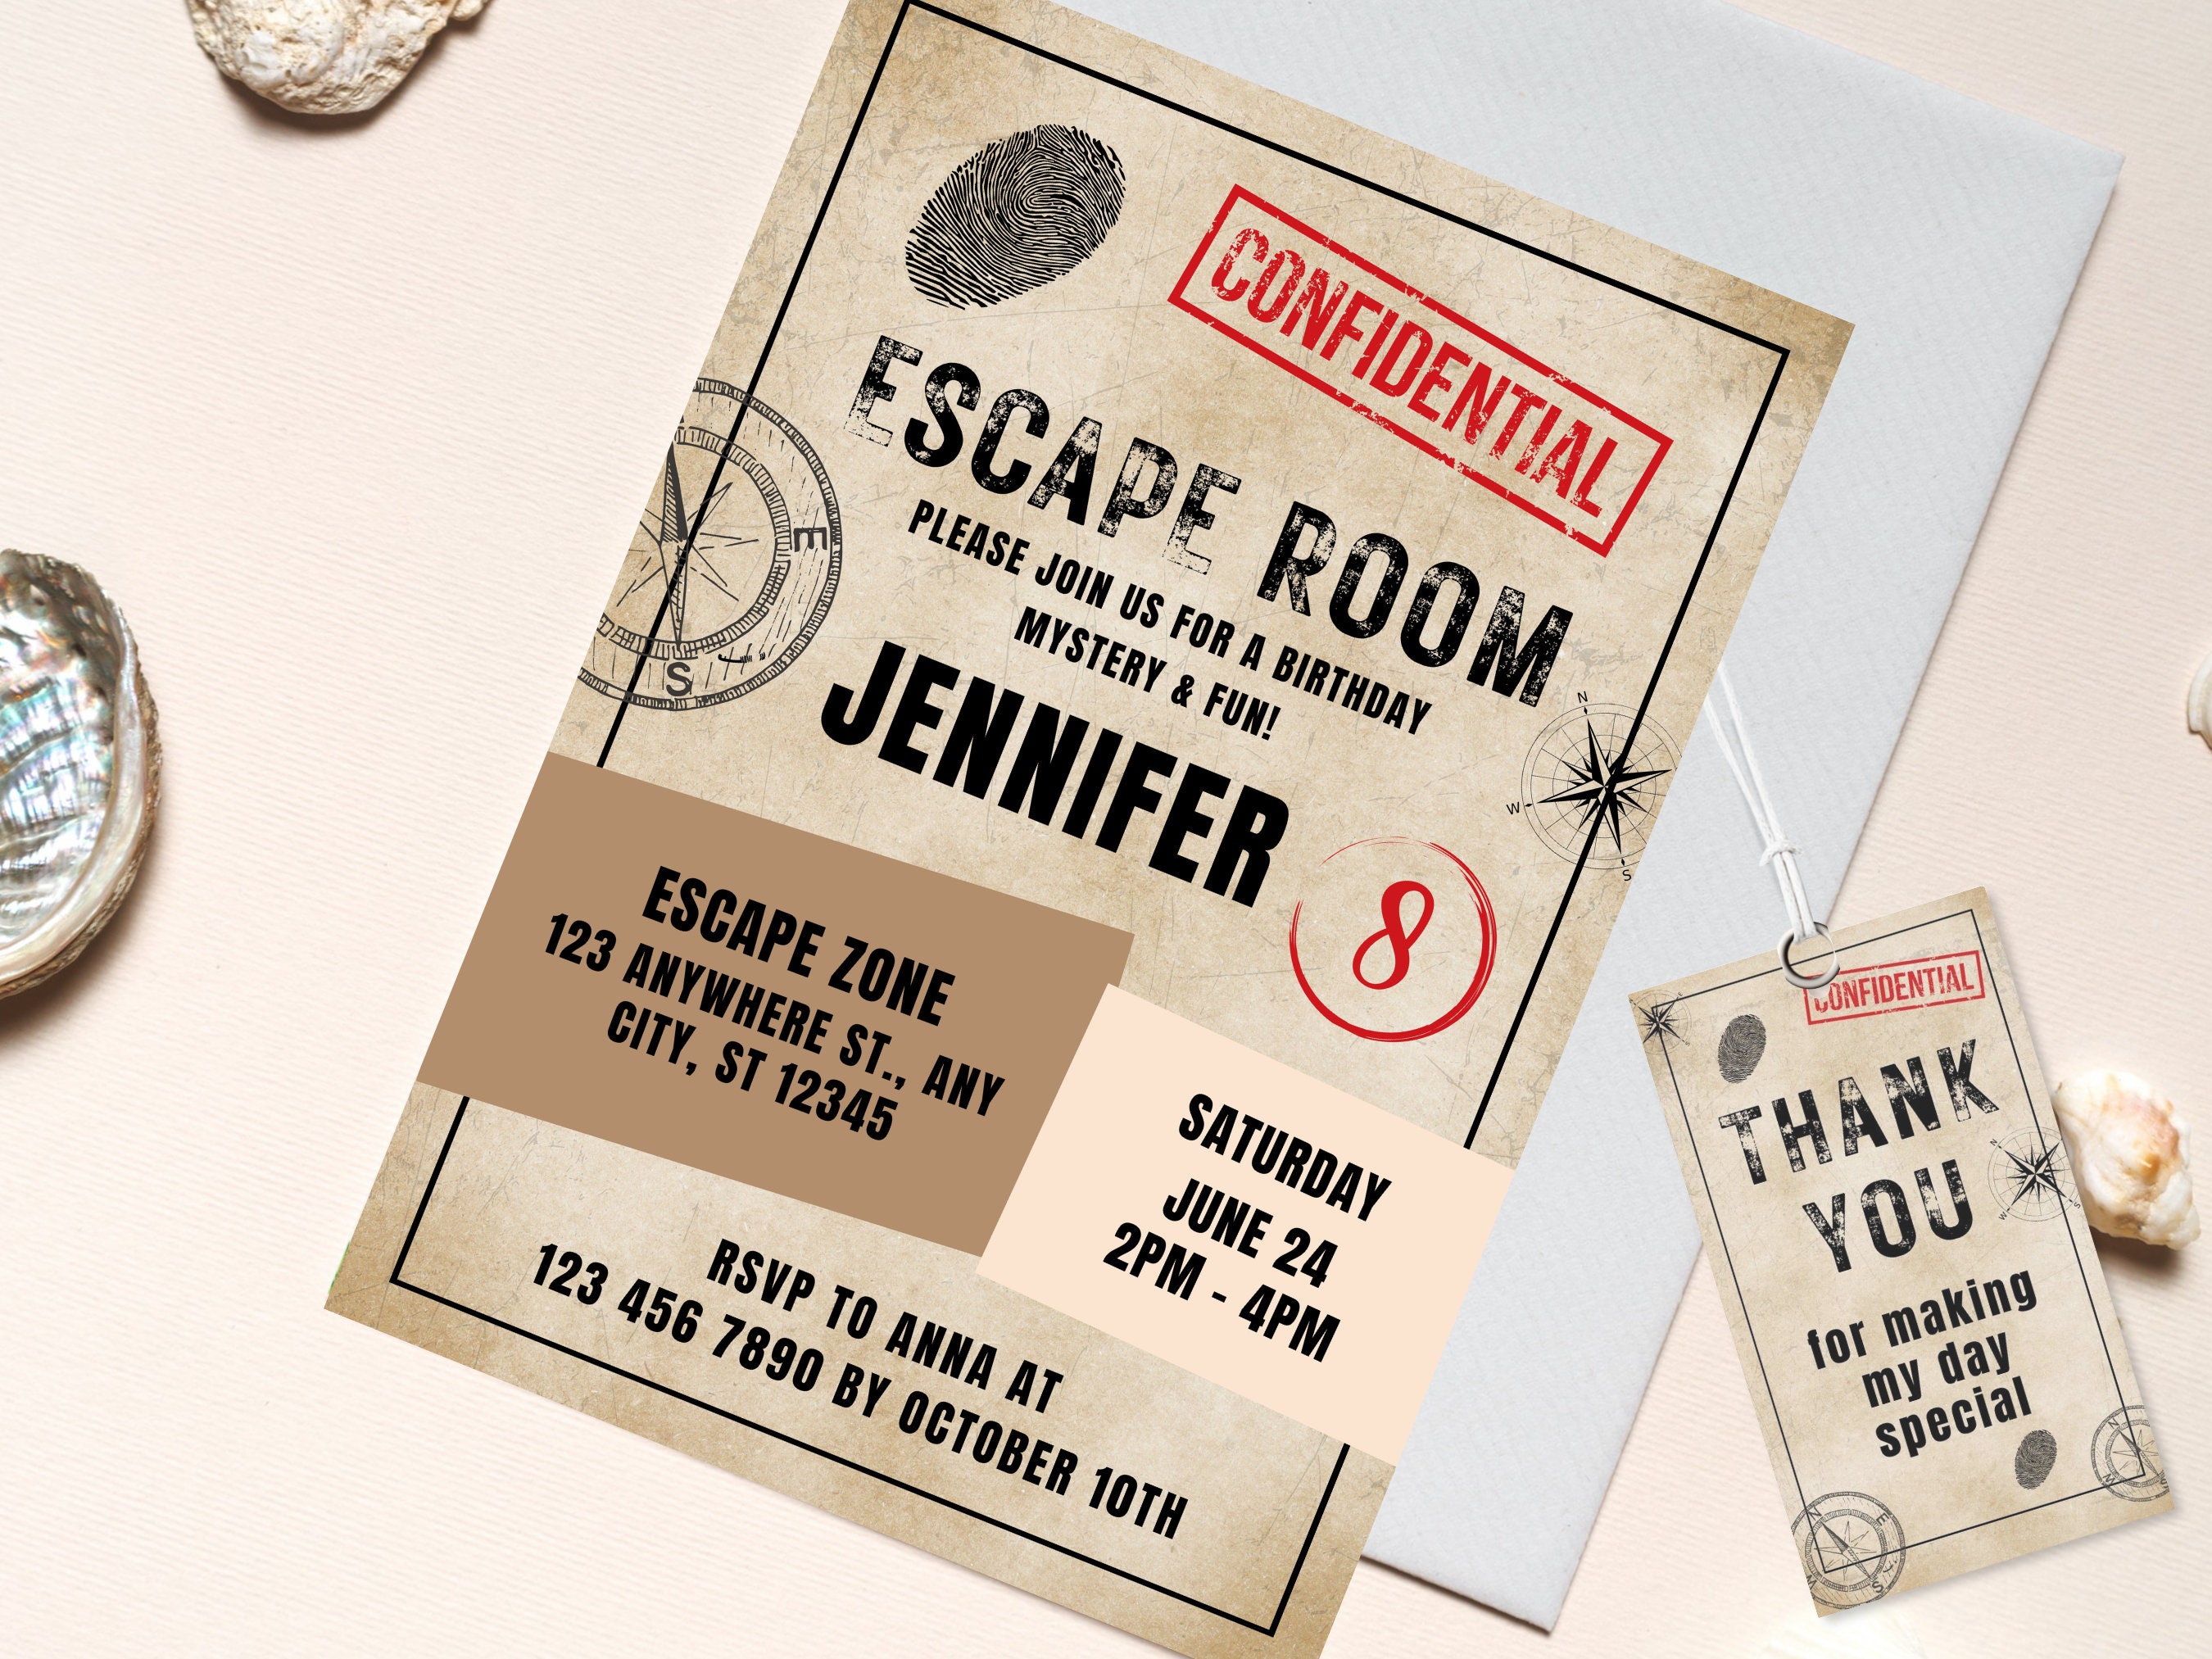 CONFIDENTIAL
ESCAPE ROOM
PLEASE JOIN US FOR A BIRTHDAY
MYSTERY & FUN!
JENNIFER
8
E
S
N
W
S
ESCAPE ZONE
123 ANYWHERE ST., ANY
CITY, ST 12345
SATURDAY
JUNE 24
2PM - 4PM
RSVP TO ANNA AT
123 456 7890 BY OCTOBER 10TH
CONFIDENTIAL
THANK
YOU
for making
my day
special
N
W
S
N
E
S